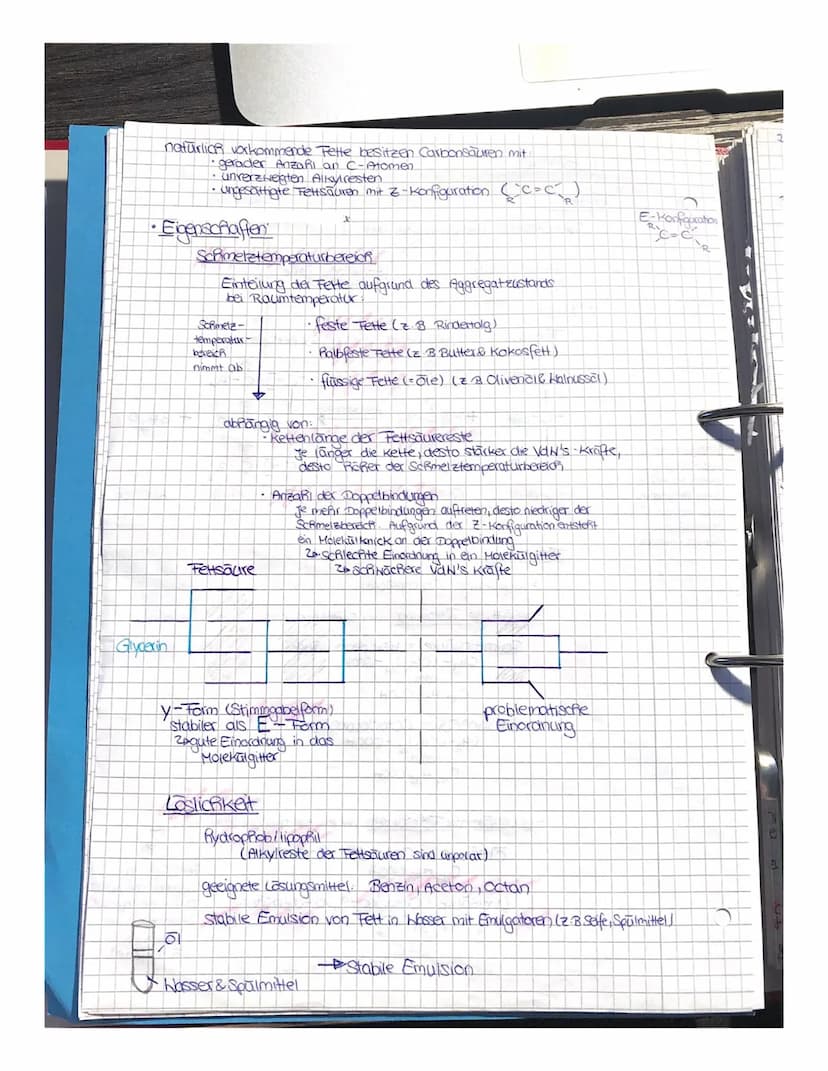 natürlich vorkommende Fette besitzen Carbonsäuren mit
· gerader Anzahl an C-Atomen
· unverzweigten Alkylresten
· ungesättigte Fettsäuren mit Z-Konfiguration (R C=C R)
E-Konfiguration
R C=C R
· Eigenschaften
Schmelztemperaturbereich
Einteilung der Fette aufgrund des Aggregatzustands
bei Raumtemperatur:
Schmelz-
temperatur-
bereich
nimmt ab
· feste Fette (z B Rindertalg)
· halbfeste Fette (z B Butter & Kokosfett)
· flüssige Fette (= Öle) (z B Olivenöl & Walnussöl)
abhängig von:
· Kettenlänge der Fettsäurereste
Je länger die Kette, desto stärker die VdW's-Kräfte,
desto höher der Schmelztemperaturbereich
· Anzahl der Doppelbindungen
Je mehr Doppelbindungen auftreten, desto niedriger der
Schmelzbereich. Aufgrund der Z-Konfiguration entsteht
ein Molekülknick an der Doppelbindung
schlechte Einordnung in ein Molekülgitter
schwächere VdW's Kräfte
Fettsäure
Glycerin
Y-Form (Stimmgabelform)
stabiler als E-Form
gute Einordnung in das
Molekülgitter
problematische
Einordnung
Löslichkeit
hydrophob/lipophil
(Alkylreste der Fettsäuren sind unpolar)
geeignete Lösungsmittel: Benzin, Aceton, Octan
stabile Emulsion von Fett in Wasser mit Emulgatoren (z B Seife, Spülmittel)
Öl
→ Stabile Emulsion
Wasser & Spülmittel